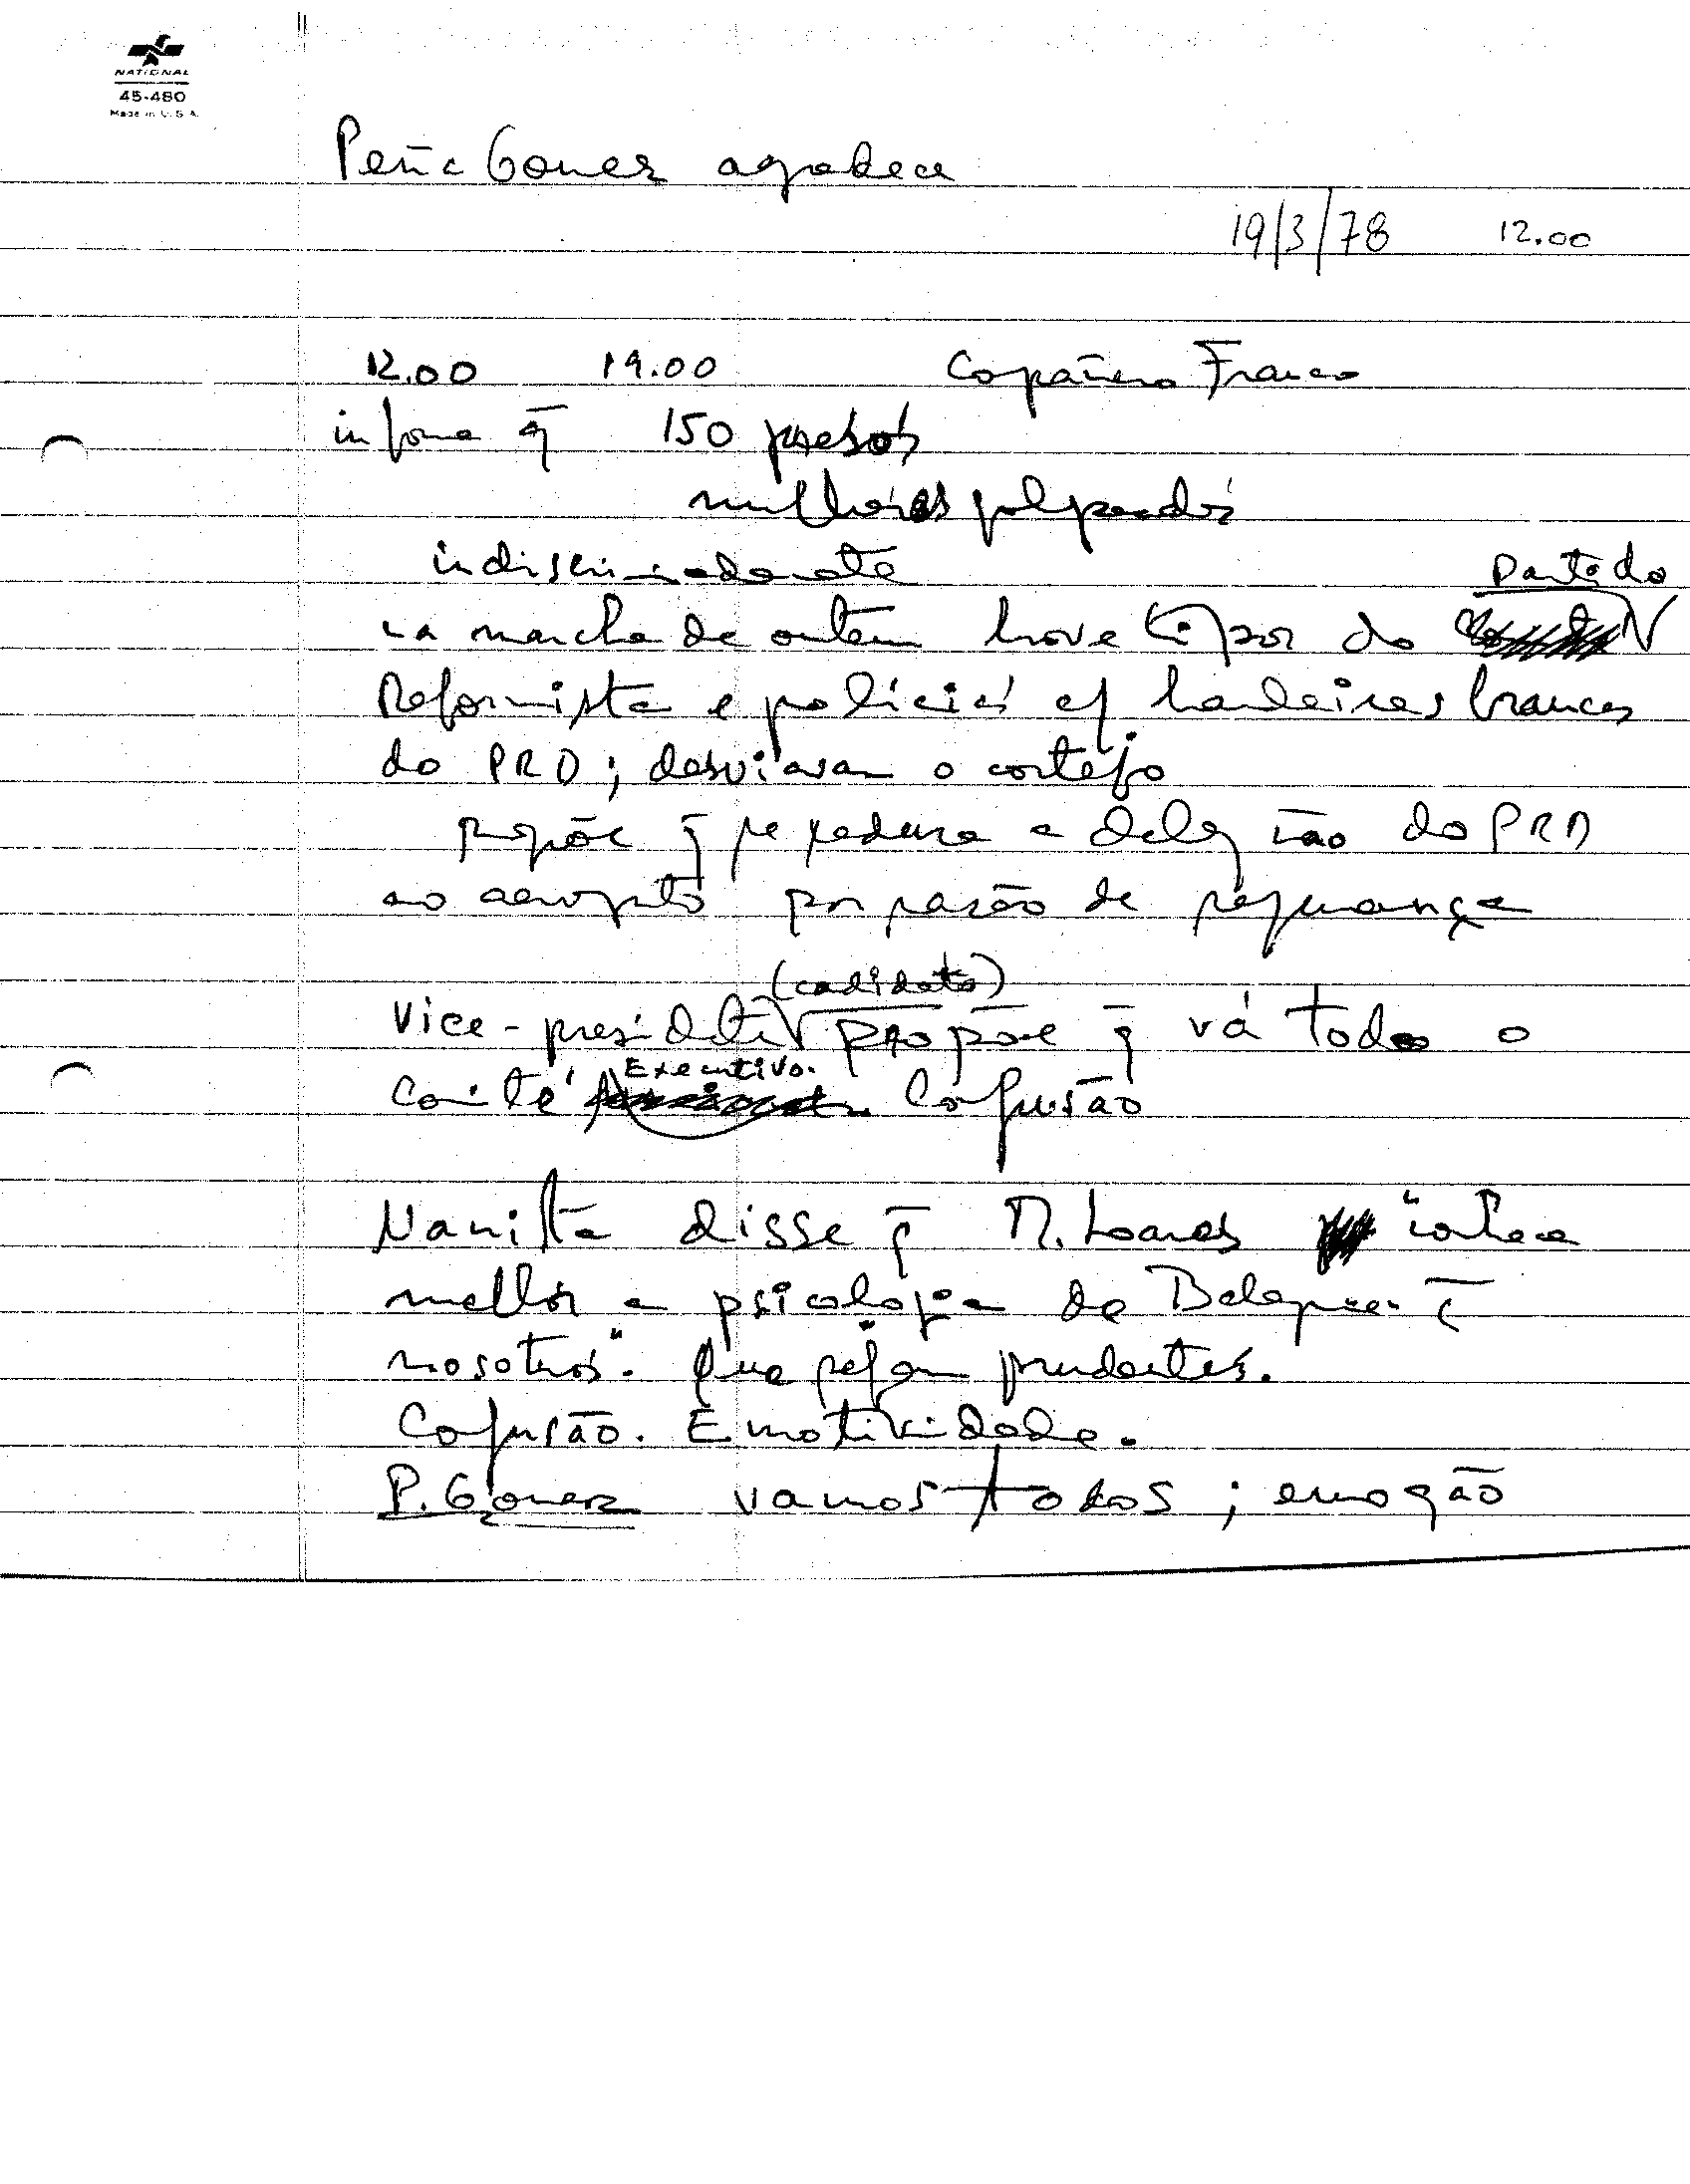 NATIONAL
45-480
Made in U.S.A.
Peña Gomez agradece
19/3/78 12.00
12.00 19.00 Copañero Franco
informa q̄ 150 presos
mulheres golpeados
indiscriminadamente
Partido
na marcha de ontem houve tipos do
Reformista e polícias c/ bandeiras brancas
do PRD; desviaram o cortejo
propõe q̄ se reduza a delegação do PRD
ao aeroporto por razão de segurança
(cadidato)
Vice-presidete propõe q̄ vá todo o
Executivo.
Comité Confusão
Manista disse q̄ M. Soares "conhece
melhor a psicologia de Balaguer q̄
nosotros". Que sejam prudentes.
Cofusão. Emotividade.
P. Gomez vamos todos; emoção